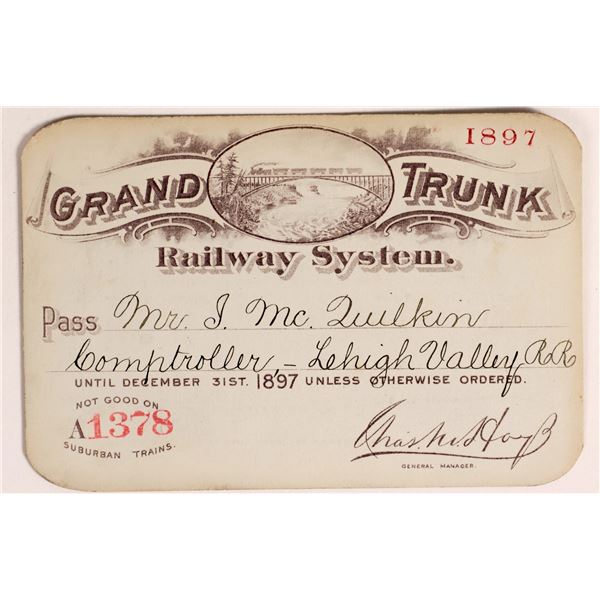 1897
GRAND TRUNK
Railway System.
Pass Mr. I. Mc. Quilkin
Comptroller, - Lehigh Valley R.R
UNTIL DECEMBER 31ST. 1897 UNLESS OTHERWISE ORDERED.
NOT GOOD ON
A1378
SUBURBAN TRAINS.
Chas. M. Hays
GENERAL MANAGER.